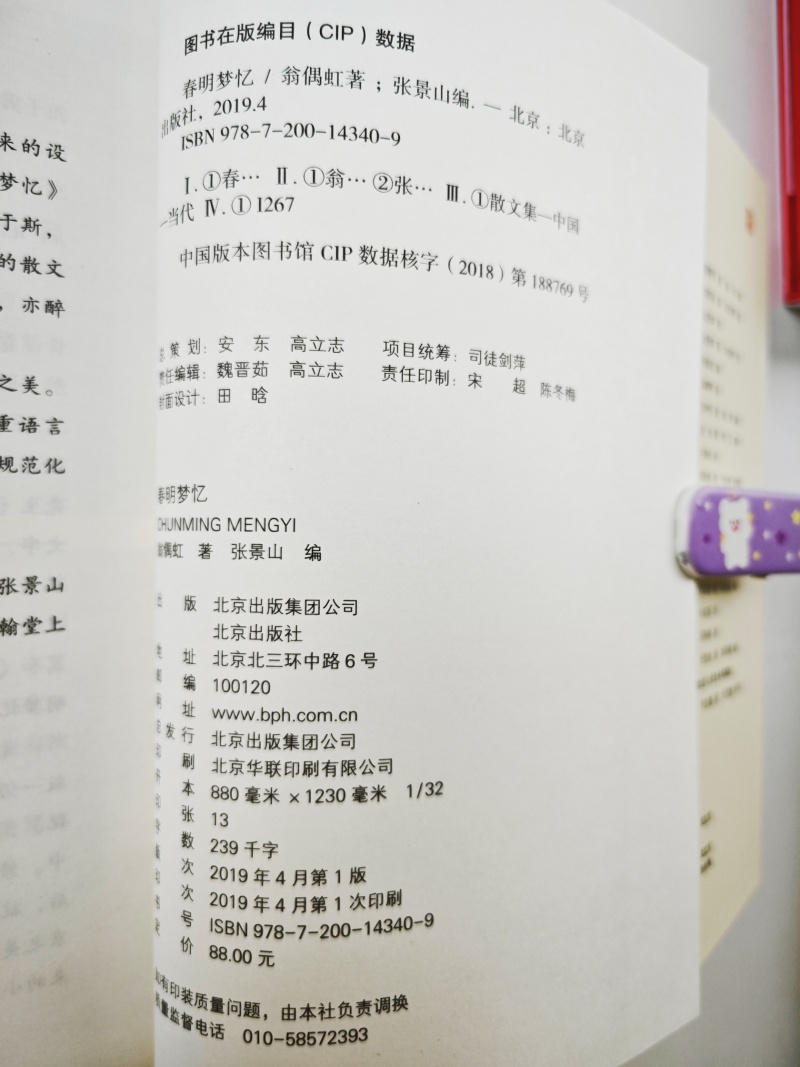 来的设
梦忆》
于斯，
的散文
，亦醉
之美。
重语言
规范化
张景山
翰堂上
图书在版编目（CIP）数据
春明梦忆 / 翁偶虹著 ; 张景山编. — 北京 : 北京
出版社, 2019.4
ISBN 978-7-200-14340-9
Ⅰ. ①春… Ⅱ. ①翁… ②张… Ⅲ. ①散文集—中国
—当代 Ⅳ. ① I267
中国版本图书馆 CIP 数据核字（2018）第 188769 号
策 划: 安 东 高立志 项目统筹: 司徒剑萍
责任编辑: 魏晋茹 高立志 责任印制: 宋 超 陈冬梅
封面设计: 田 晗
春明梦忆
CHUNMING MENGYI
翁偶虹 著 张景山 编
出 版 北京出版集团公司
北京出版社
地 址 北京北三环中路 6 号
邮 编 100120
网 址 www.bph.com.cn
发行 北京出版集团公司
印 刷 北京华联印刷有限公司
开 本 880 毫米 × 1230 毫米 1/32
印 张 13
字 数 239 千字
版 次 2019 年 4 月第 1 版
印 次 2019 年 4 月第 1 次印刷
书 号 ISBN 978-7-200-14340-9
定 价 88.00 元
如有印装质量问题，由本社负责调换
质量监督电话 010-58572393